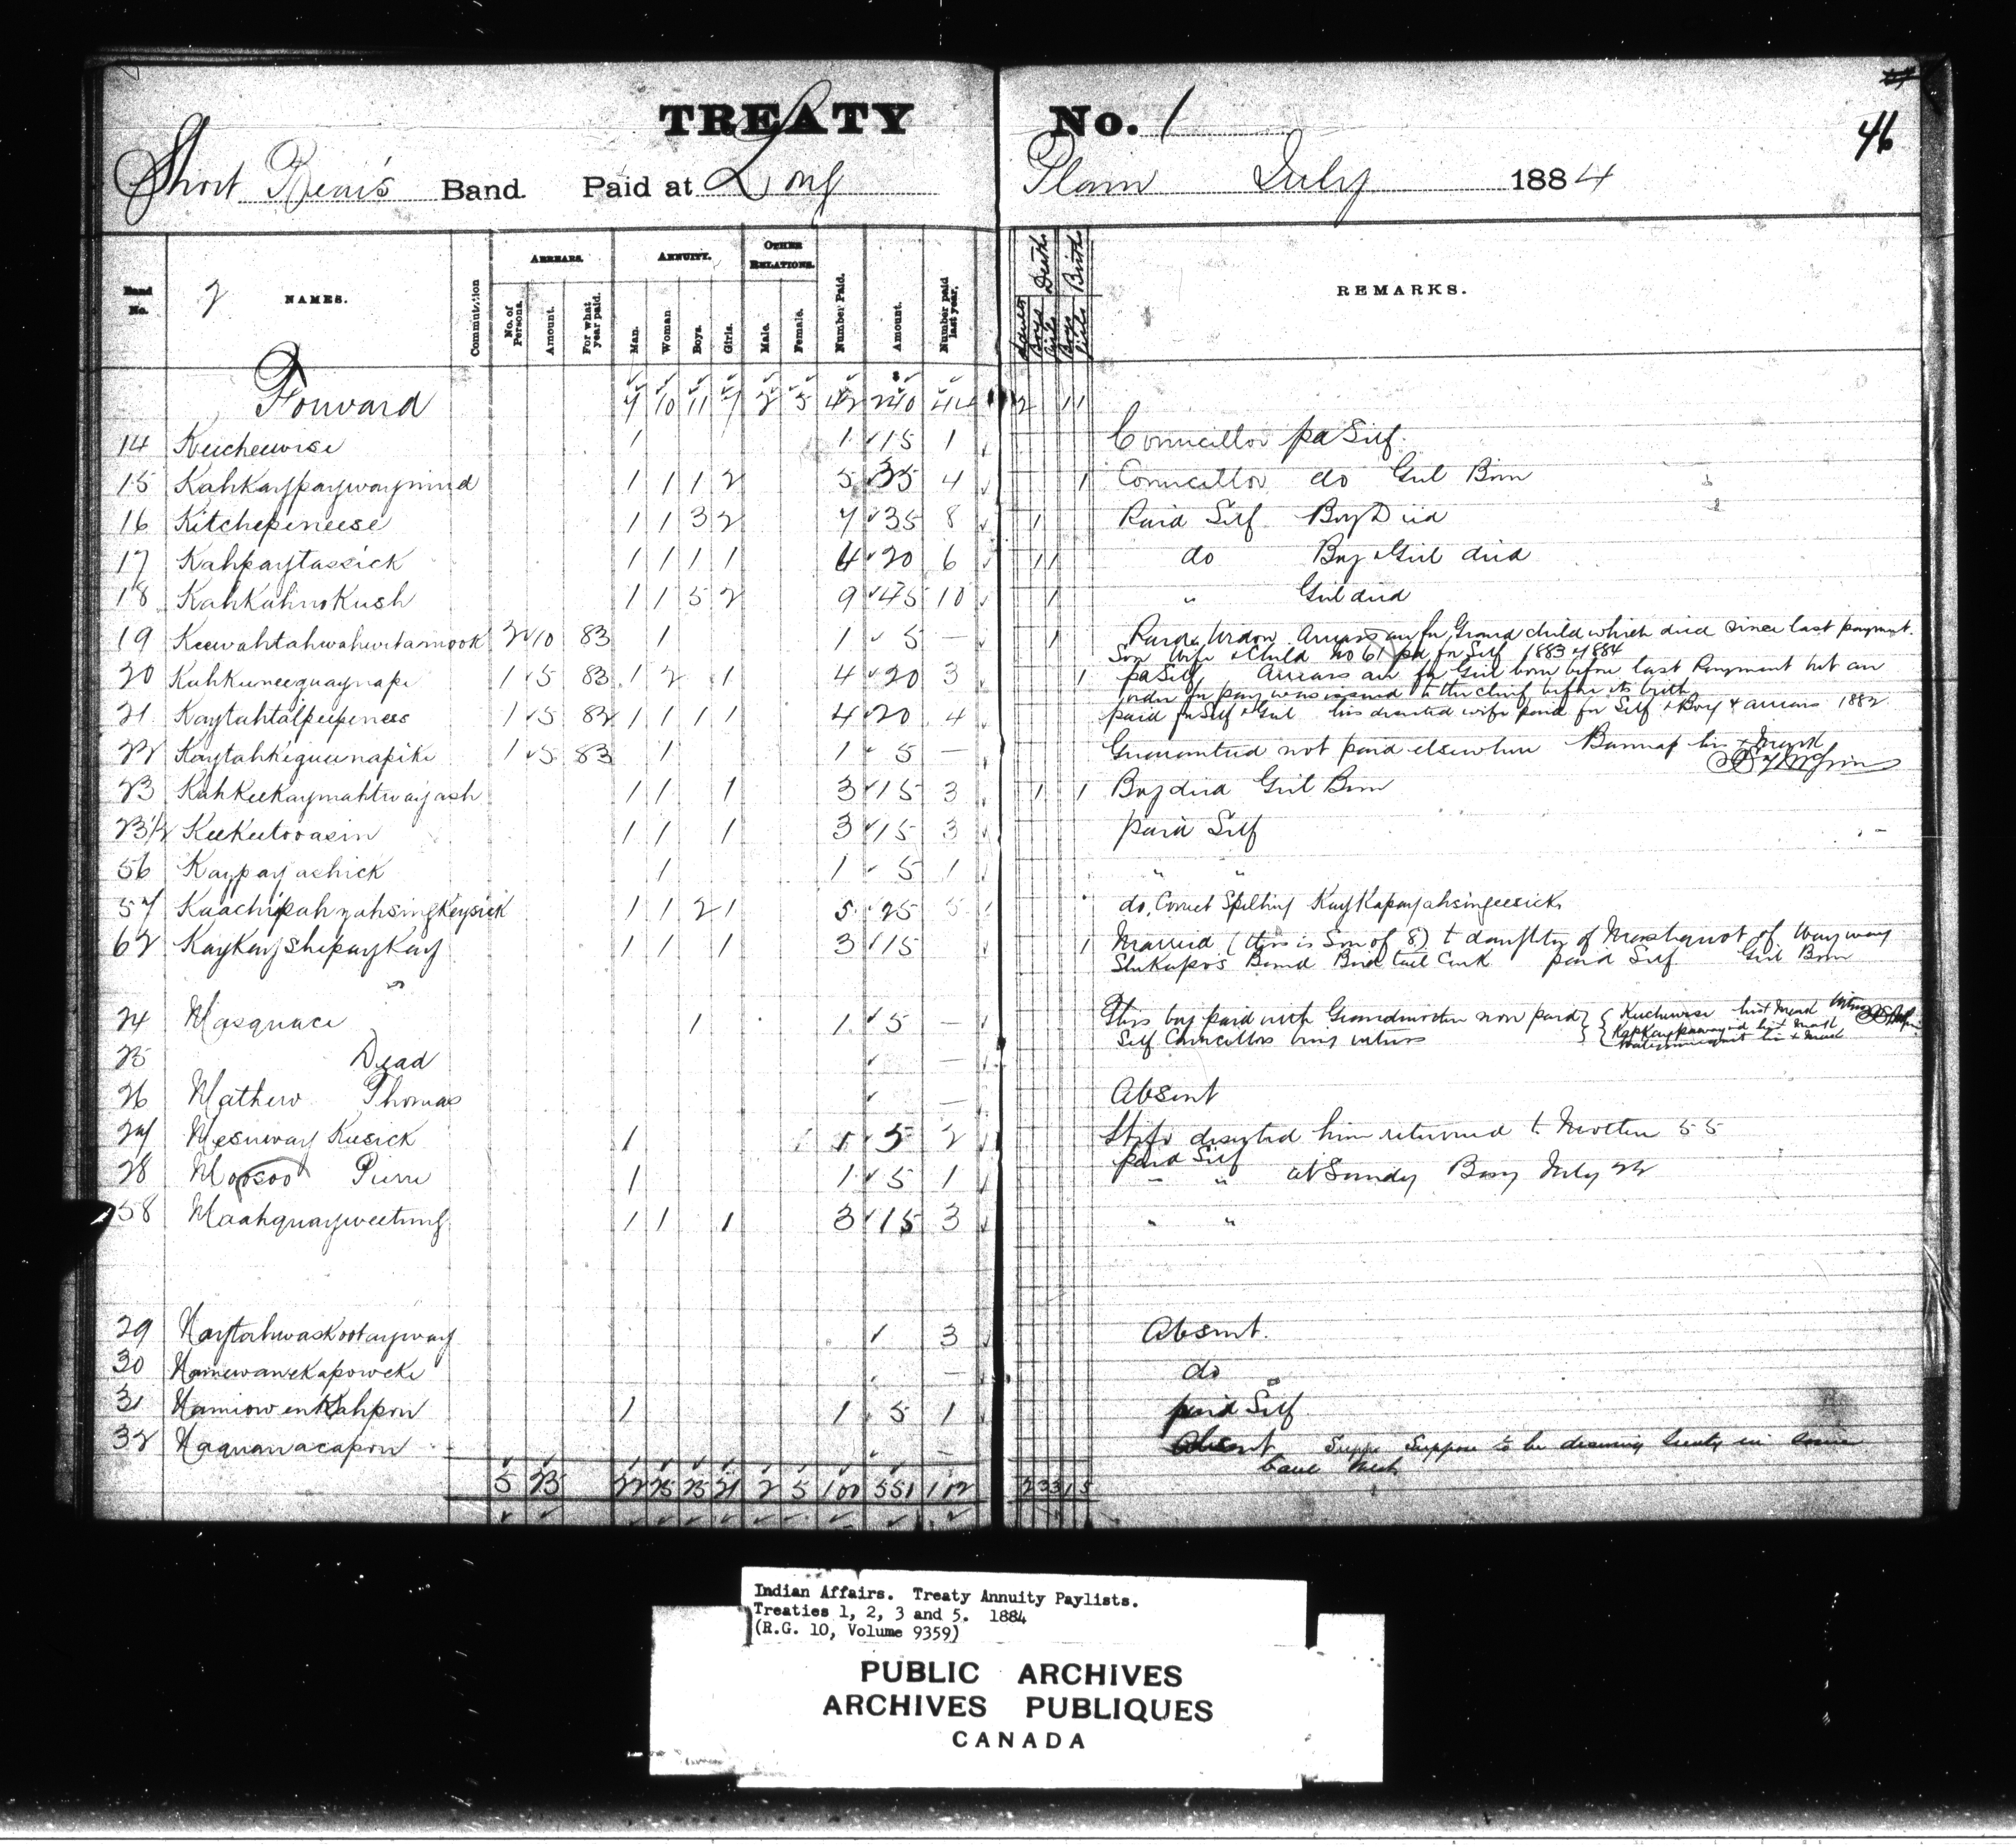 TREATY No. 1
46
Short Bear's Band. Paid at Long Plain July 1884
Deaths Births
ARREARS. ANNUITY. OTHER RELATIONS.
Band No. NAMES. Commutation No. of Persons. Amount. For what year paid. Man. Woman. Boys. Girls. Male. Female. Number Paid. Amount. Number paid last year. Boys Girls Boys Girls REMARKS.
Forward 9 10 11 7 2 3 42 240 44 2 1 1
14 Keecheewise 1 1 15 1 Councillor pd Self.
15 Kahkaypaywaymind 1 1 1 2 5 35 4 1 Councillor do Girl Born
16 Kitchepineese 1 1 3 2 7 35 8 1 Paid Self Boy Died
17 Kahpaytassick 1 1 1 1 4 20 6 1 1 do Boy & Girl died
18 KahKahnoKush 1 1 5 2 9 45 10 1 " Girl died
19 Keewahtahwahwetamook 2 10 83 1 1 5 — 1 Paid Widow Arrears are for Grand child which died since last payment.
Son Wife & Child No 61 pd for Self 1883 & 1884
20 Kuhkuneequaynape 1 5 83 1 2 1 4 20 3 1 pd Self Arrears are for Girl born before last Payment but an
order for pay was issued to the Chief before its birth
21 Kaytahtalpeepeness 1 5 82 1 1 1 1 4 20 4 paid for Self & Girl his deserted wife paid for Self & Boy & arrears 1882
22 Kaytahkeguunapike 1 5 83 1 1 5 — Guaranteed not paid elsewhere his x Mark
23 Kahkeekaymahtwayash 1 1 1 3 15 3 1 1 Boy died Girl Born
23½ Keekeetooasin 1 1 1 3 15 3 paid Self
56 Kaypayashick 1 1 5 1 " "
57 Kaachipahyahsingkeysick 1 1 2 1 5 25 5 do, Correct Spelling Kaykapayahsingeesick
62 KayKayshepayKay 1 1 1 3 15 1 Married (this is Son of 8) to daughter of of Way way
Band Bird tail Creek paid Self Girl Born
24 Masquace 1 1 5 — This boy paid with Grandmother now paid Keechewise his x Mark Witness
Self Councillors being witness his x Mark
his x Mark
25 Dead —
26 Mathew Thomas — Absent
27 Mesuway Kusick 1 1 5 2 Wife deserted him returned to Mother 55
paid Self
28 Moosoo Pierre 1 1 5 1 " " at Sandy Bay July 22
58 Maahquayweetung 1 1 1 3 15 3 " "
29 Naytahwaskootayway 3 Absent.
30 Namewanekapoweke — do
31 NamiowenKahpow 1 1 5 1 paid Self
32 Naquanacapow — Absent Suppose to be drawing Treaty in some
band West
5 23 22 25 25 21 2 5 100 551 102 2 3 3 1 5
Indian Affairs. Treaty Annuity Paylists.
Treaties 1, 2, 3 and 5. 1884
(R.G. 10, Volume 9359)
PUBLIC ARCHIVES
ARCHIVES PUBLIQUES
CANADA